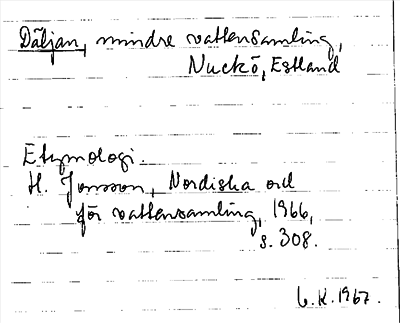 Däljan, mindre vattensamling,
Nuckö, Estland
Etymologi.
H. Jonsson, Nordiska ord
för vattensamling, 1966,
s. 308.
1967.